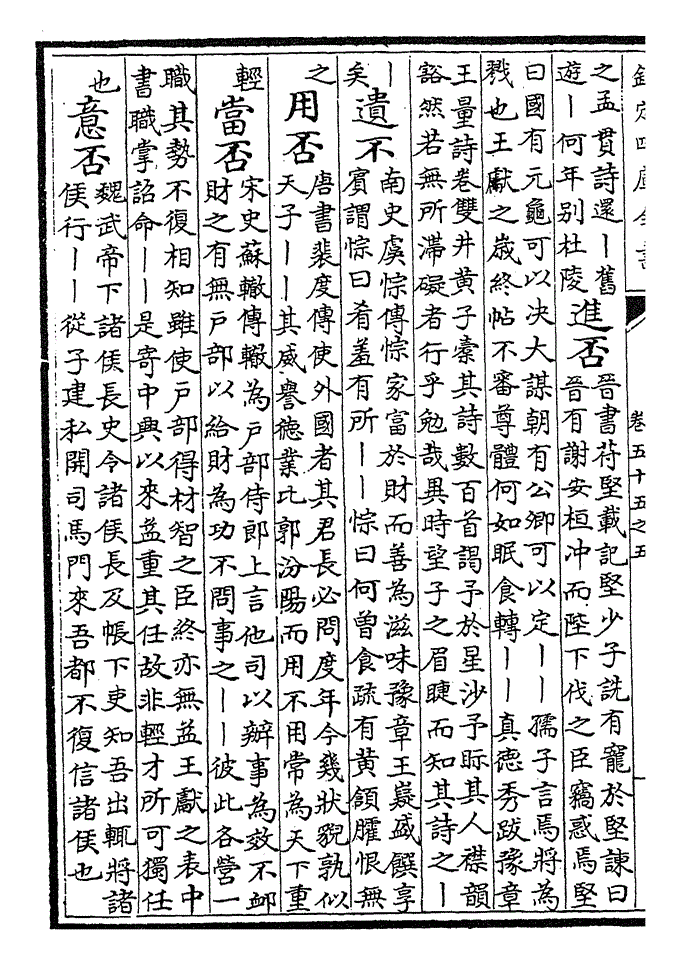 欽定四庫全書
卷五十五之五
之孟貫詩還丨舊
遊丨何年别杜陵
進否
晉書苻堅載記堅少子詵有寵於堅諫曰
晉有謝安桓冲而陛下伐之臣竊惑焉堅
曰國有元龜可以决大謀朝有公卿可以定丨丨孺子言焉將為
戮也王獻之歲終帖不審尊體何如眠食轉丨丨真德秀跋豫章
王量詩卷雙井黄子槖其詩數百首謁予於星沙予眎其人襟韻
豁然若無所滯礙者行乎勉哉異時望子之眉睫而知其詩之丨
丨
矣
遺不
南史虞悰傳悰家富於財而善為滋味豫章王嶷盛饌享
賓謂悰曰肴羞有所丨丨悰曰何曾食疏有黄頷臛恨無
之
用否
唐書裴度傳使外國者其君長必問度年今幾狀貌孰似
天子丨丨其威譽徳業比郭汾陽而用不用常為天下重
輕
當否
宋史蘇轍傳轍為戶部侍郎上言他司以辦事為效不卹
財之有無戶部以給財為功不問事之丨丨彼此各營一
職其勢不復相知雖使戶部得材智之臣終亦無益王獻之表中
書職掌詔命丨丨是寄中興以來益重其任故非輕才所可獨任
也
意否
魏武帝下諸侯長史令諸侯長及帳下吏知吾出輒將諸
侯行丨丨從子建私開司馬門來吾都不復信諸侯也